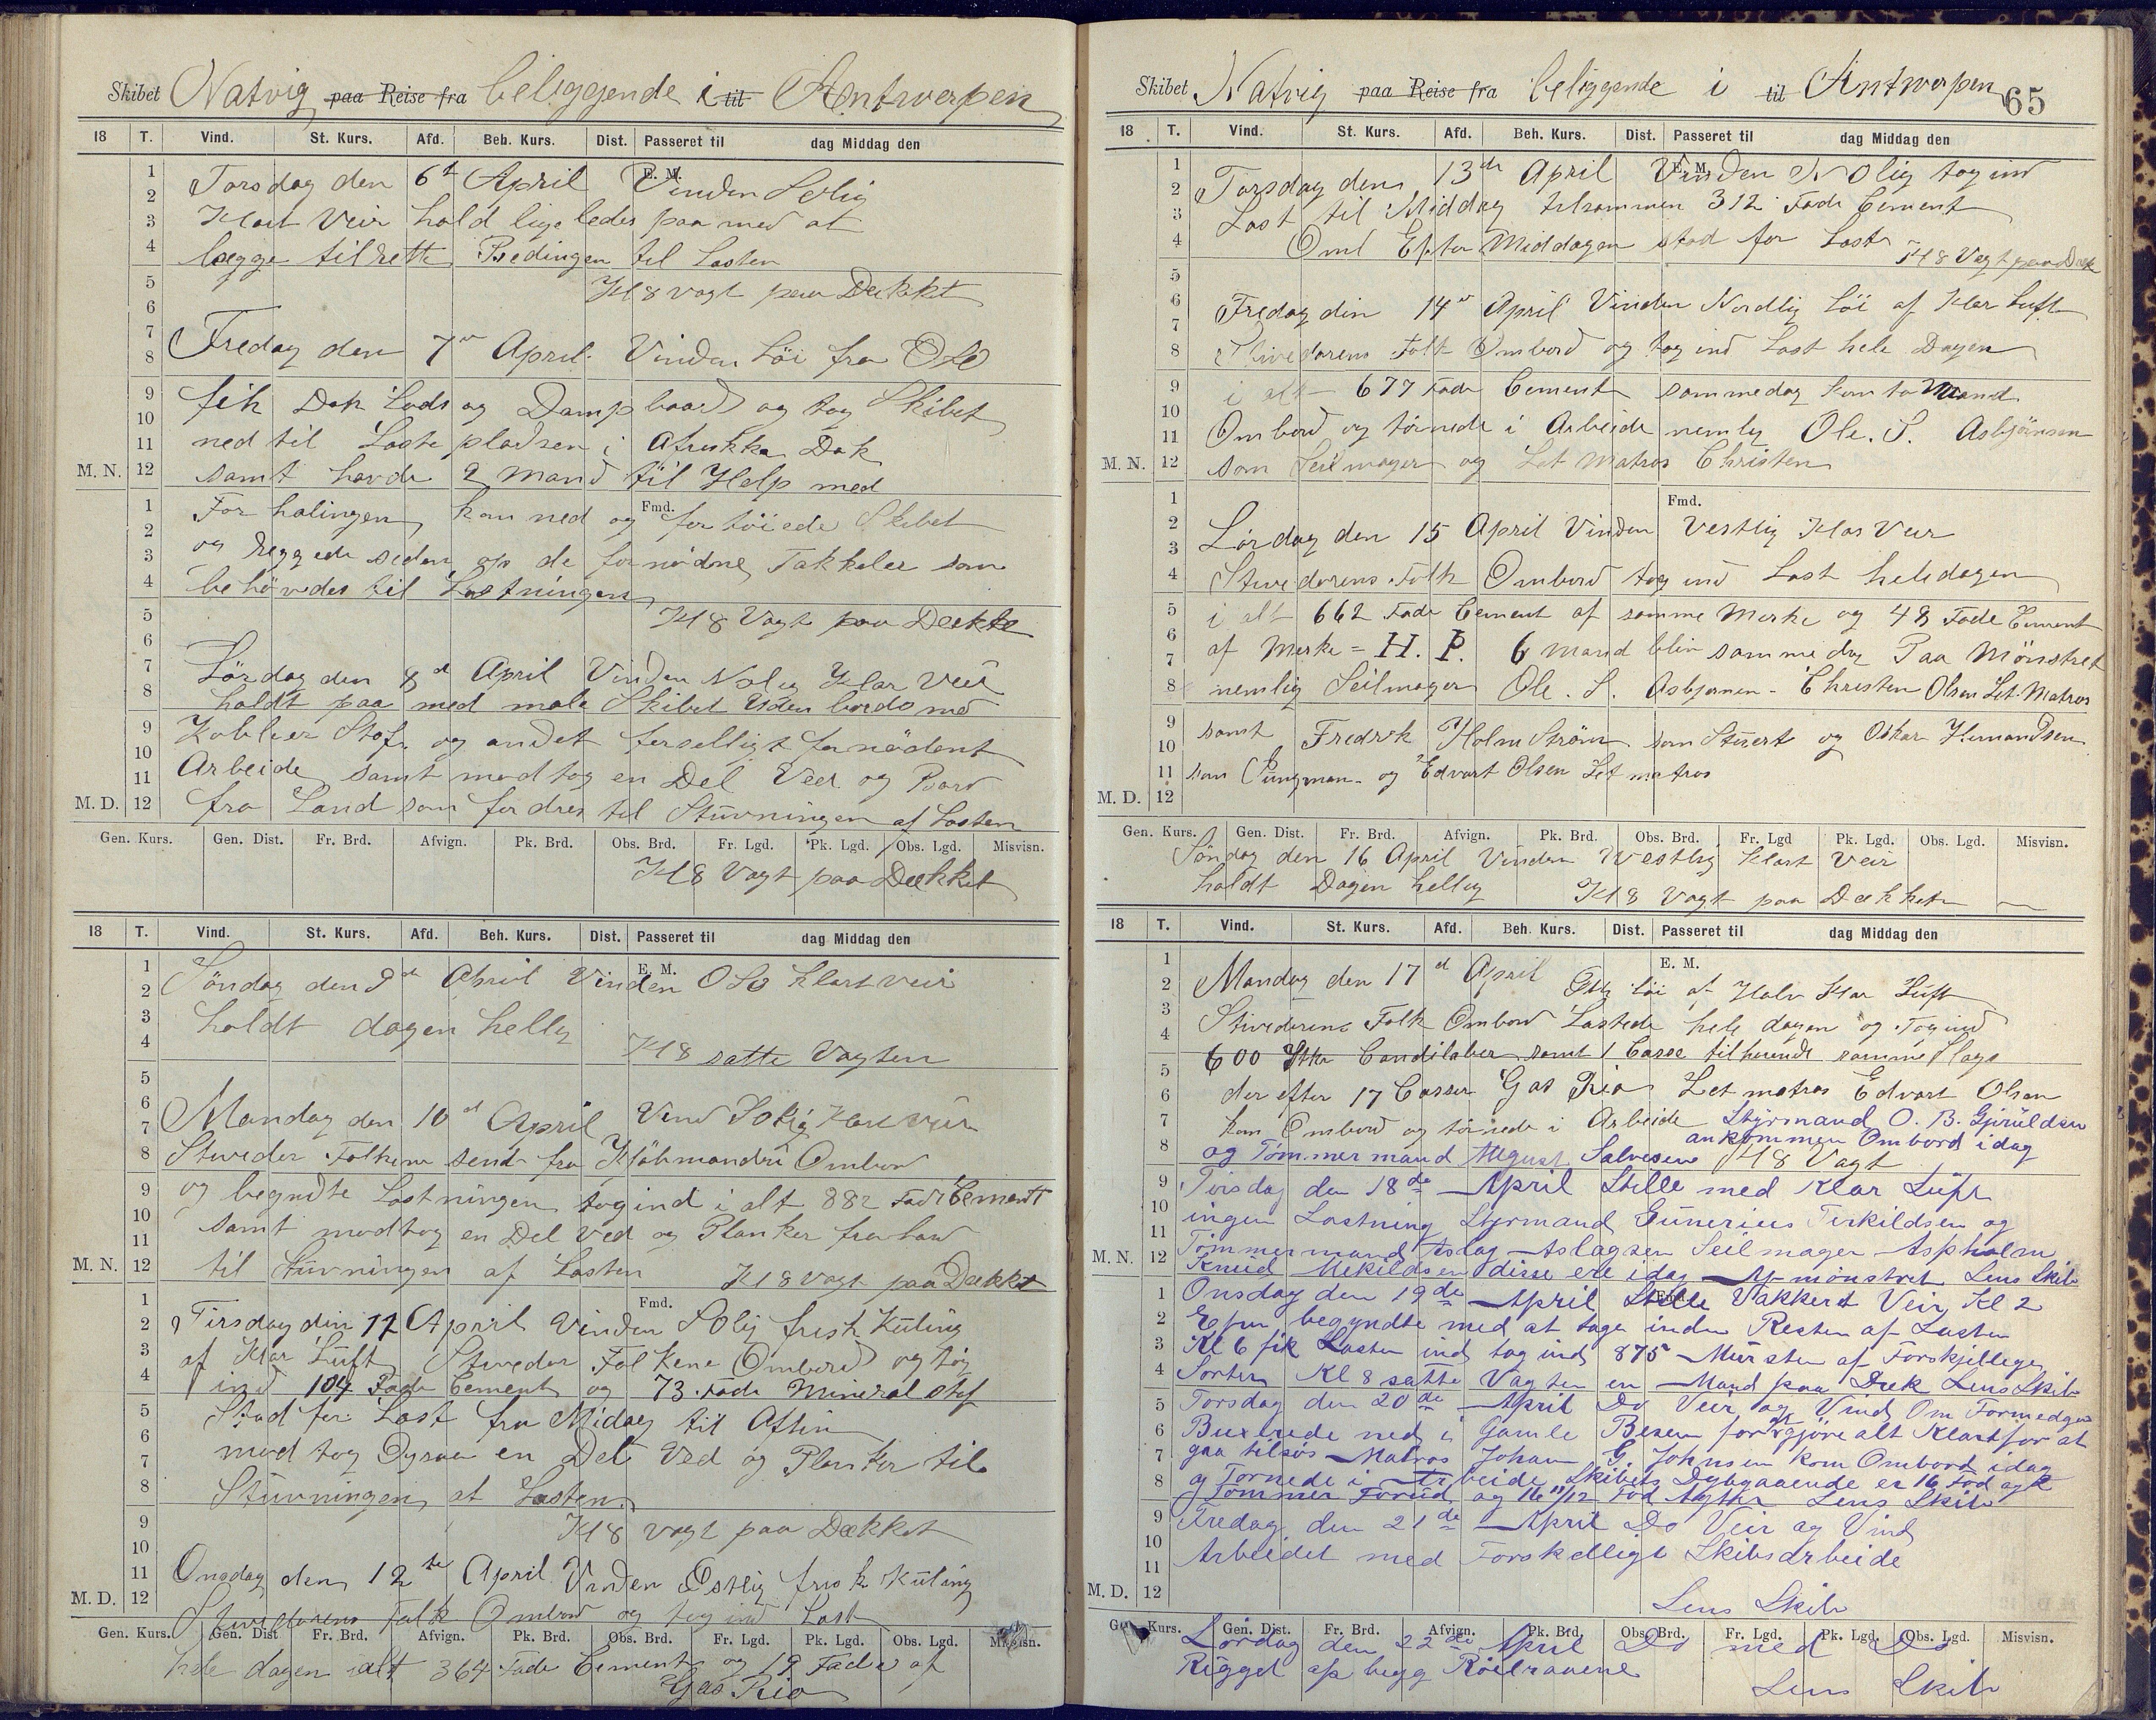 Skibet Natvig paa Reise fra beliggende i til Antwerpen
18 T. Vind. St. Kurs. Afd. Beh. Kurs. Dist. Passeret til dag Middag den
E. M.
Torsdag den 6te April Vinden Solig
Klart Veir hold ligeledes paa med at
lægge tilrette Bedingen til Lasten
Kl 8 vagt paa Dækket
Fredag den 7de April Vinden Löi fra OSO
fik Dok Lods og Dampbaad og tog Skibet
ned til Lastepladsen i Afrikka Dok
samt havde 2 Mand til Help med
Fmd.
Forhalingen, kom ned og fortöiede Skibet
og Riggede siden op de fornödne Takkeler som
behövedes til Lastningen
Kl 8 Vagt paa Dækket
Lördag den 8de April Vinden Nolig Klar Veir
holdt paa med male Skibet Udenbords med
Kobber Stof og andet forselligt fornödent
Arbeide samt modtog en Del Ved og Bord
fra Land som fordres til Stuvningen af Lasten
M. N. M. D.
Gen. Kurs. Gen. Dist. Fr. Brd. Afvign. Pk. Brd. Obs. Brd. Fr. Lgd. Pk. Lgd. Obs. Lgd. Misvisn.
Kl 8 Vagt paa Dækket
18 T. Vind. St. Kurs. Afd. Beh. Kurs. Dist. Passeret til dag Middag den
E. M.
Söndag den 9de April Vinden OSO klart veir
holdt dagen hellig
Kl 8 satte Vagten
Mandag den 10de April Vind Solig Klar veir
Stuveder Folkene sendt fra Kjöbmanden Ombord
og begyndte Lastningen tog ind i alt 882 Fade Cement
samt modtog en Del ved og Planker fra Land
til Stuvningen af Lasten Kl 8 vagt paa Dækket
Fmd.
Tirsdag den 11 April Vinden SOlig frisk Kuling
af Klar Luft Stuveder Folkene Ombord og tog
ind 104 Fade Cement og 73 Fade Mineral Stof
Stod for Last fra Midag til Aften
modtog en Del Ved og Planker til
Stuvningen af Lasten
Kl 8 vagt paa Dækket
Onsdag den 12te April Vinden Ostlig frisk Kuling
Stuvedorens Folk Ombord og tog ind Last
M. N. M. D.
Gen. Kurs. Gen. Dist Fr. Brd. Afvign. Pk. Brd. Obs. Brd. Fr. Lgd. Pk. Lgd. Obs. Lgd. Misvisn.
hele dagen ialt 364 Fade Cement og 19 Fade af
Gas Rio
Skibet Natvig paa Reise fra beliggende i til Antwerpen 65
18 T. Vind. St. Kurs. Afd. Beh. Kurs. Dist. Passeret til dag Middag den
E. M.
Torsdag den 13de April Vinden NOlig tog ind
Last til Middag tilsammen 312 Fade Cement
Om Efter Middagen stod for Last Kl 8 Vagt paa Dæk
Fredag den 14de April Vinden Nordlig Löi af Klar Luft
Stivedorens Folk Ombord og tog ind Last hele Dagen
i alt 677 Fade Cement sammedag kom to Mand
Ombord og törnede i Arbeide nemlig Ole. S. Asbjörnsen
som Seilmager og Let Matros Christen
Fmd.
Lördag den 15 April Vinden Vestlig Klar Veir
Stuvedorens Folk Ombord tog ind Last heledagen
i alt 662 Fade Cement af samme Merke og 48 Fade Cement
af Merke = H. P. 6 Mand blev samme dag Paa Mönstret
nemlig Seilmager Ole. S. Asbjörnsen - Christen Olsen Let. Matros
samt Fredrik Holm Ström som Stuert og Oskar Hermandsen
som Jungman - og Edvart Olsen Let matros
M. N. M. D.
Gen. Kurs. Gen. Dist. Fr. Brd. Afvign. Pk. Brd. Obs. Brd. Fr. Lgd Pk. Lgd. Obs. Lgd. Misvisn.
Söndag den 16 April Vinden Westlig Klart Veir
holdt Dagen hellig Kl 8 Vagt paa Dækket
18 T. Vind. St. Kurs. Afd. Beh. Kurs. Dist. Passeret til dag Middag den
E. M.
Mandag den 17de April löi af Halv Klar Luft
Stivedorens Folk Ombord Lastede hele dagen og Tog ind
600 Candilaber samt 1 Casse tilhørende samme Slags
der efter 17 Casser Gas Rio Let matros Edvart Olsen
kom Ombord og törnede i Arbeide Styrmand O. B. Gjruldsen
og Tömmermand August Salvesen ankommen Ombord idag Kl 8 Vagt
Tirsdag den 18de April Stille med Klar Luft
ingen Lastning Styrmand Gunerius Terkildsen og
Tömmermand Aslag Aslagsen Seilmager Aspholm
Knud Mekildsen disse ere idag Af mönstret Lens Skib
Fmd.
Onsdag den 19de April Stille Vakkert Veir Kl 2
Efm begyndte med at tage inden Resten af Lasten
Kl 6 fik Lasten ind tog ind 875 Mursten af Forskjellige
Sorter Kl 8 satte Vagten en Mand paa Dæk Lens Skib
Torsdag den 20de April Do Veir og Vind Om Formedgen
Buxerede ned i Gamle Besen for at gjöre alt Klart for at
gaa tilsös Matros Johan G. Johnsen kom Ombord idag
og Tornede i Arbeide Skibets Dybgaaende er 16 Fod og 2
Tommer Forud og 16 11/12 Fod Agter Lens Skib
Fredag den 21de April Do Veir og Vind
Arbeidet med Forskelligt Skibsarbeide
Lens Skib
M. N. M. D.
Gen. Kurs. Gen. Dist. Fr. Brd. Afvign. Pk. Brd. Obs. Brd. Fr. Lgd. Pk. Lgd. Obs. Lgd. Misvisn.
Lördag den 22de April Do med Do
Rigget op begg Röilraaene
Lens Skib